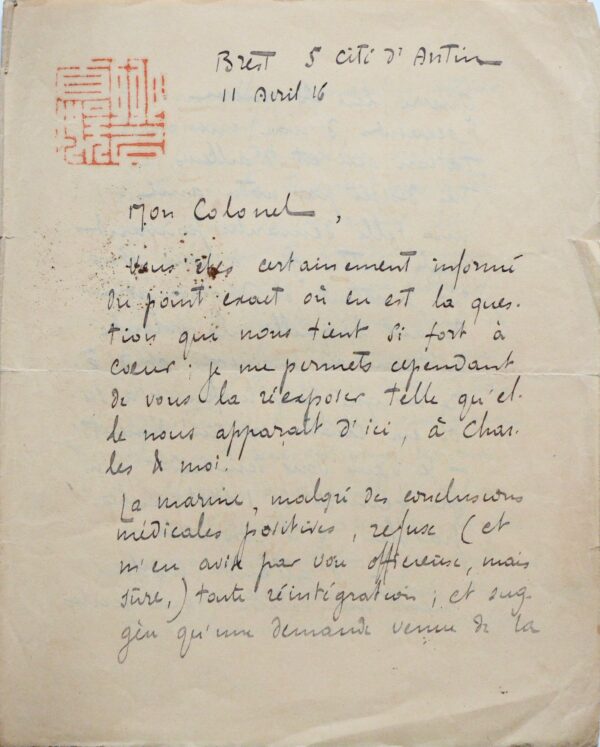 Brest 5 Cité d'Antin
11 Avril 16
Mon Colonel,
Vous êtes certainement informé
du point exact où en est la ques-
tion qui nous tient si fort à
coeur ; je me permets cependant
de vous la réexposer telle qu'el-
le nous apparaît d'ici, à Char-
les & moi.
La marine, malgré des conclusions
médicales positives, refuse (et
m'en avise par voie officieuse, mais
sûre,) toute réintégration ; et sug-
gère qu'une demande venue de la